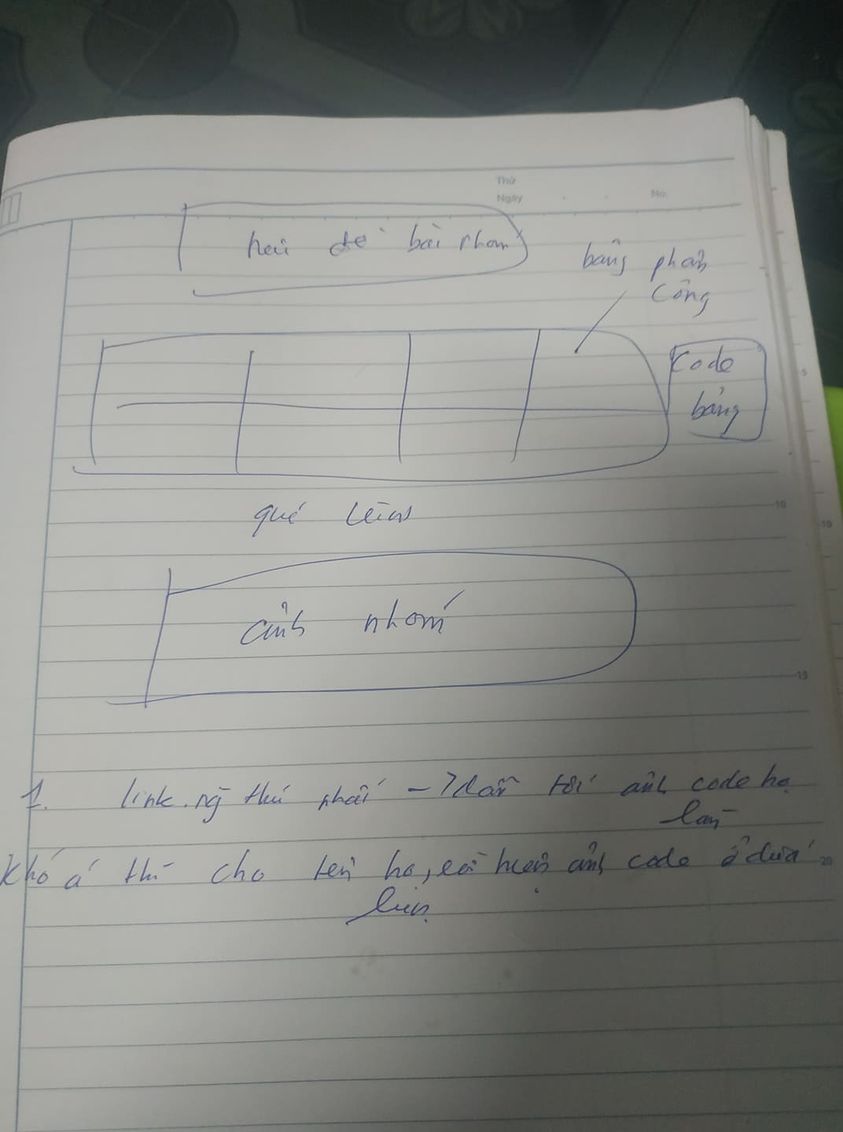 Thứ
Ngày No.
đề bài nhóm
bảng phân
công
code
bảng
quá
ảnh nhóm
1. link ng thứ phải -> dẫn tới ảnh code họ
làm
khó á thì cho tên họ, rồi hiện ảnh code ở dưới
luôn
5
10
15
20